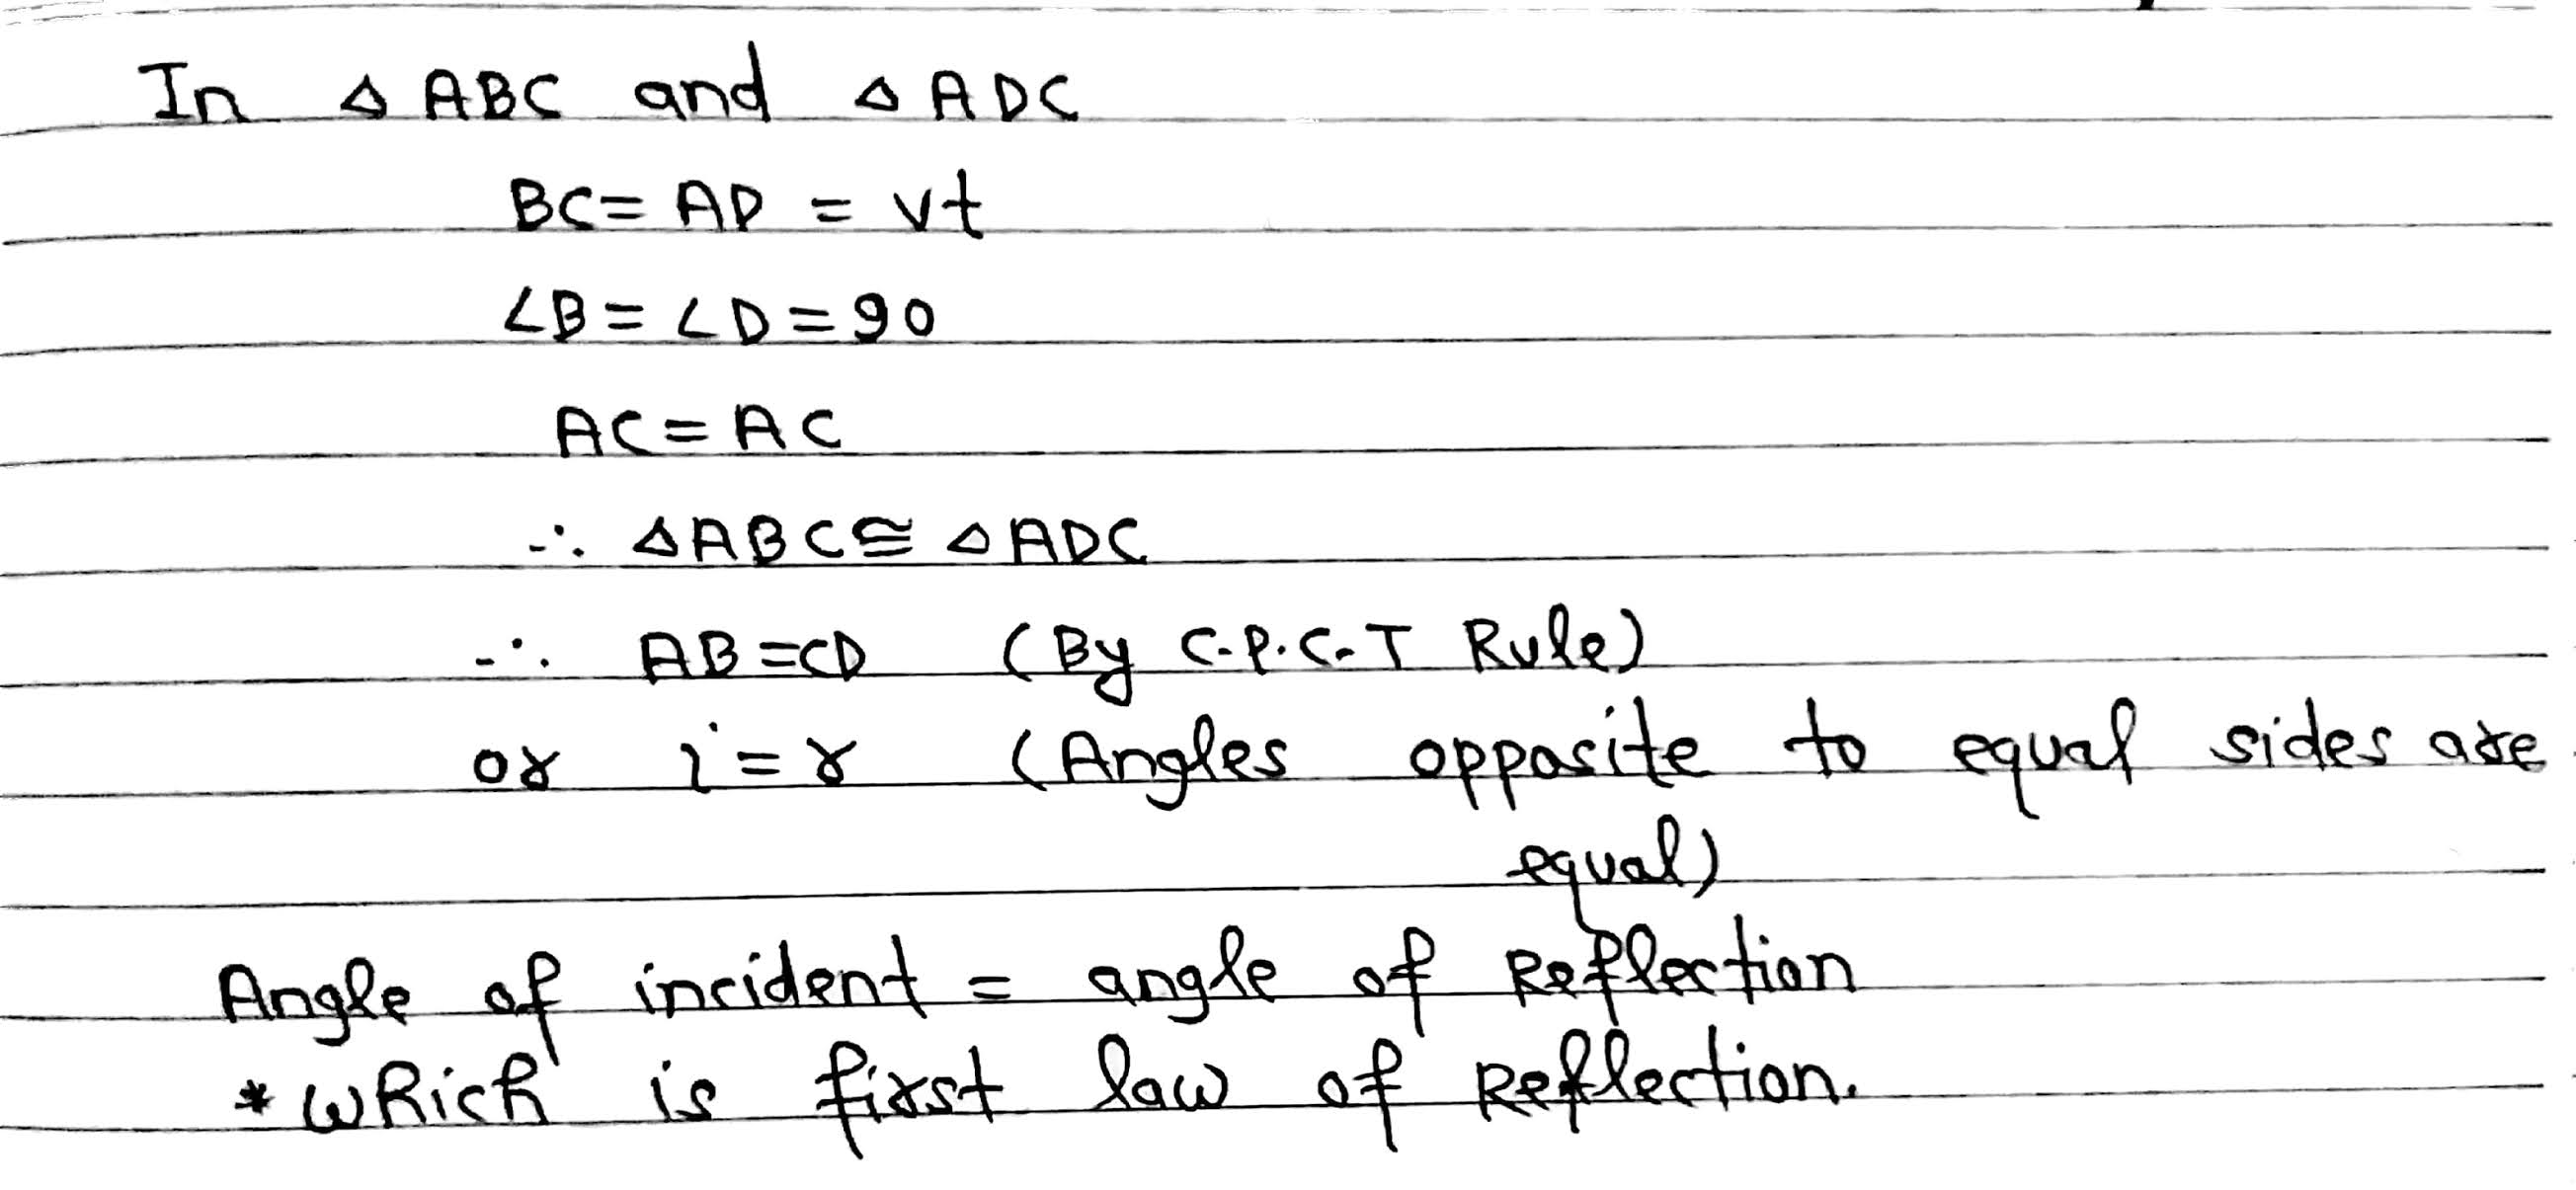 In △ ABC and △ ADC
BC= AD = vt
∠B = ∠D = 90
AC = AC
∴ △ABC ≅ △ADC
∴ AB =CD (By C.P.C.T Rule)
or i = r (Angles opposite to equal sides are
equal)
Angle of incident = angle of Reflection
* which is first law of Reflection.